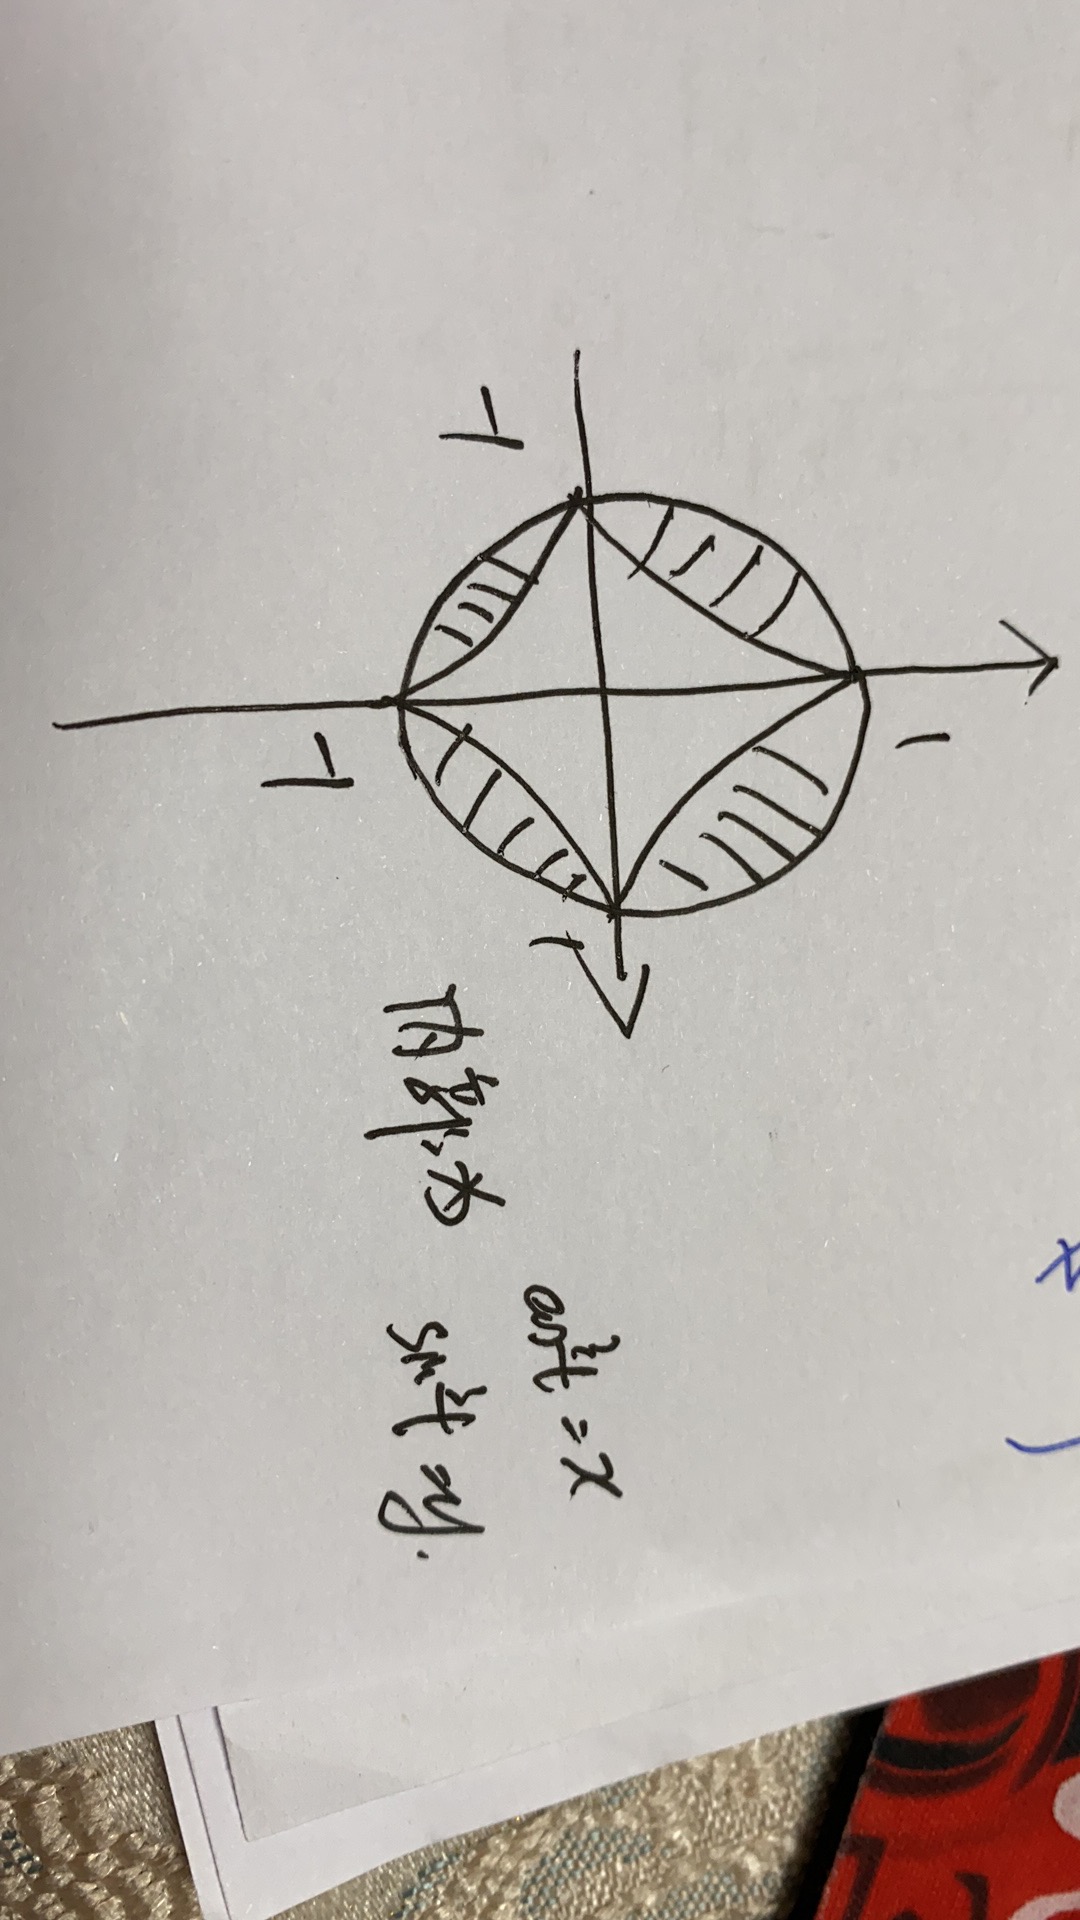 1
-1
1
-1
内部为
cos³t = x
sin³t = y.